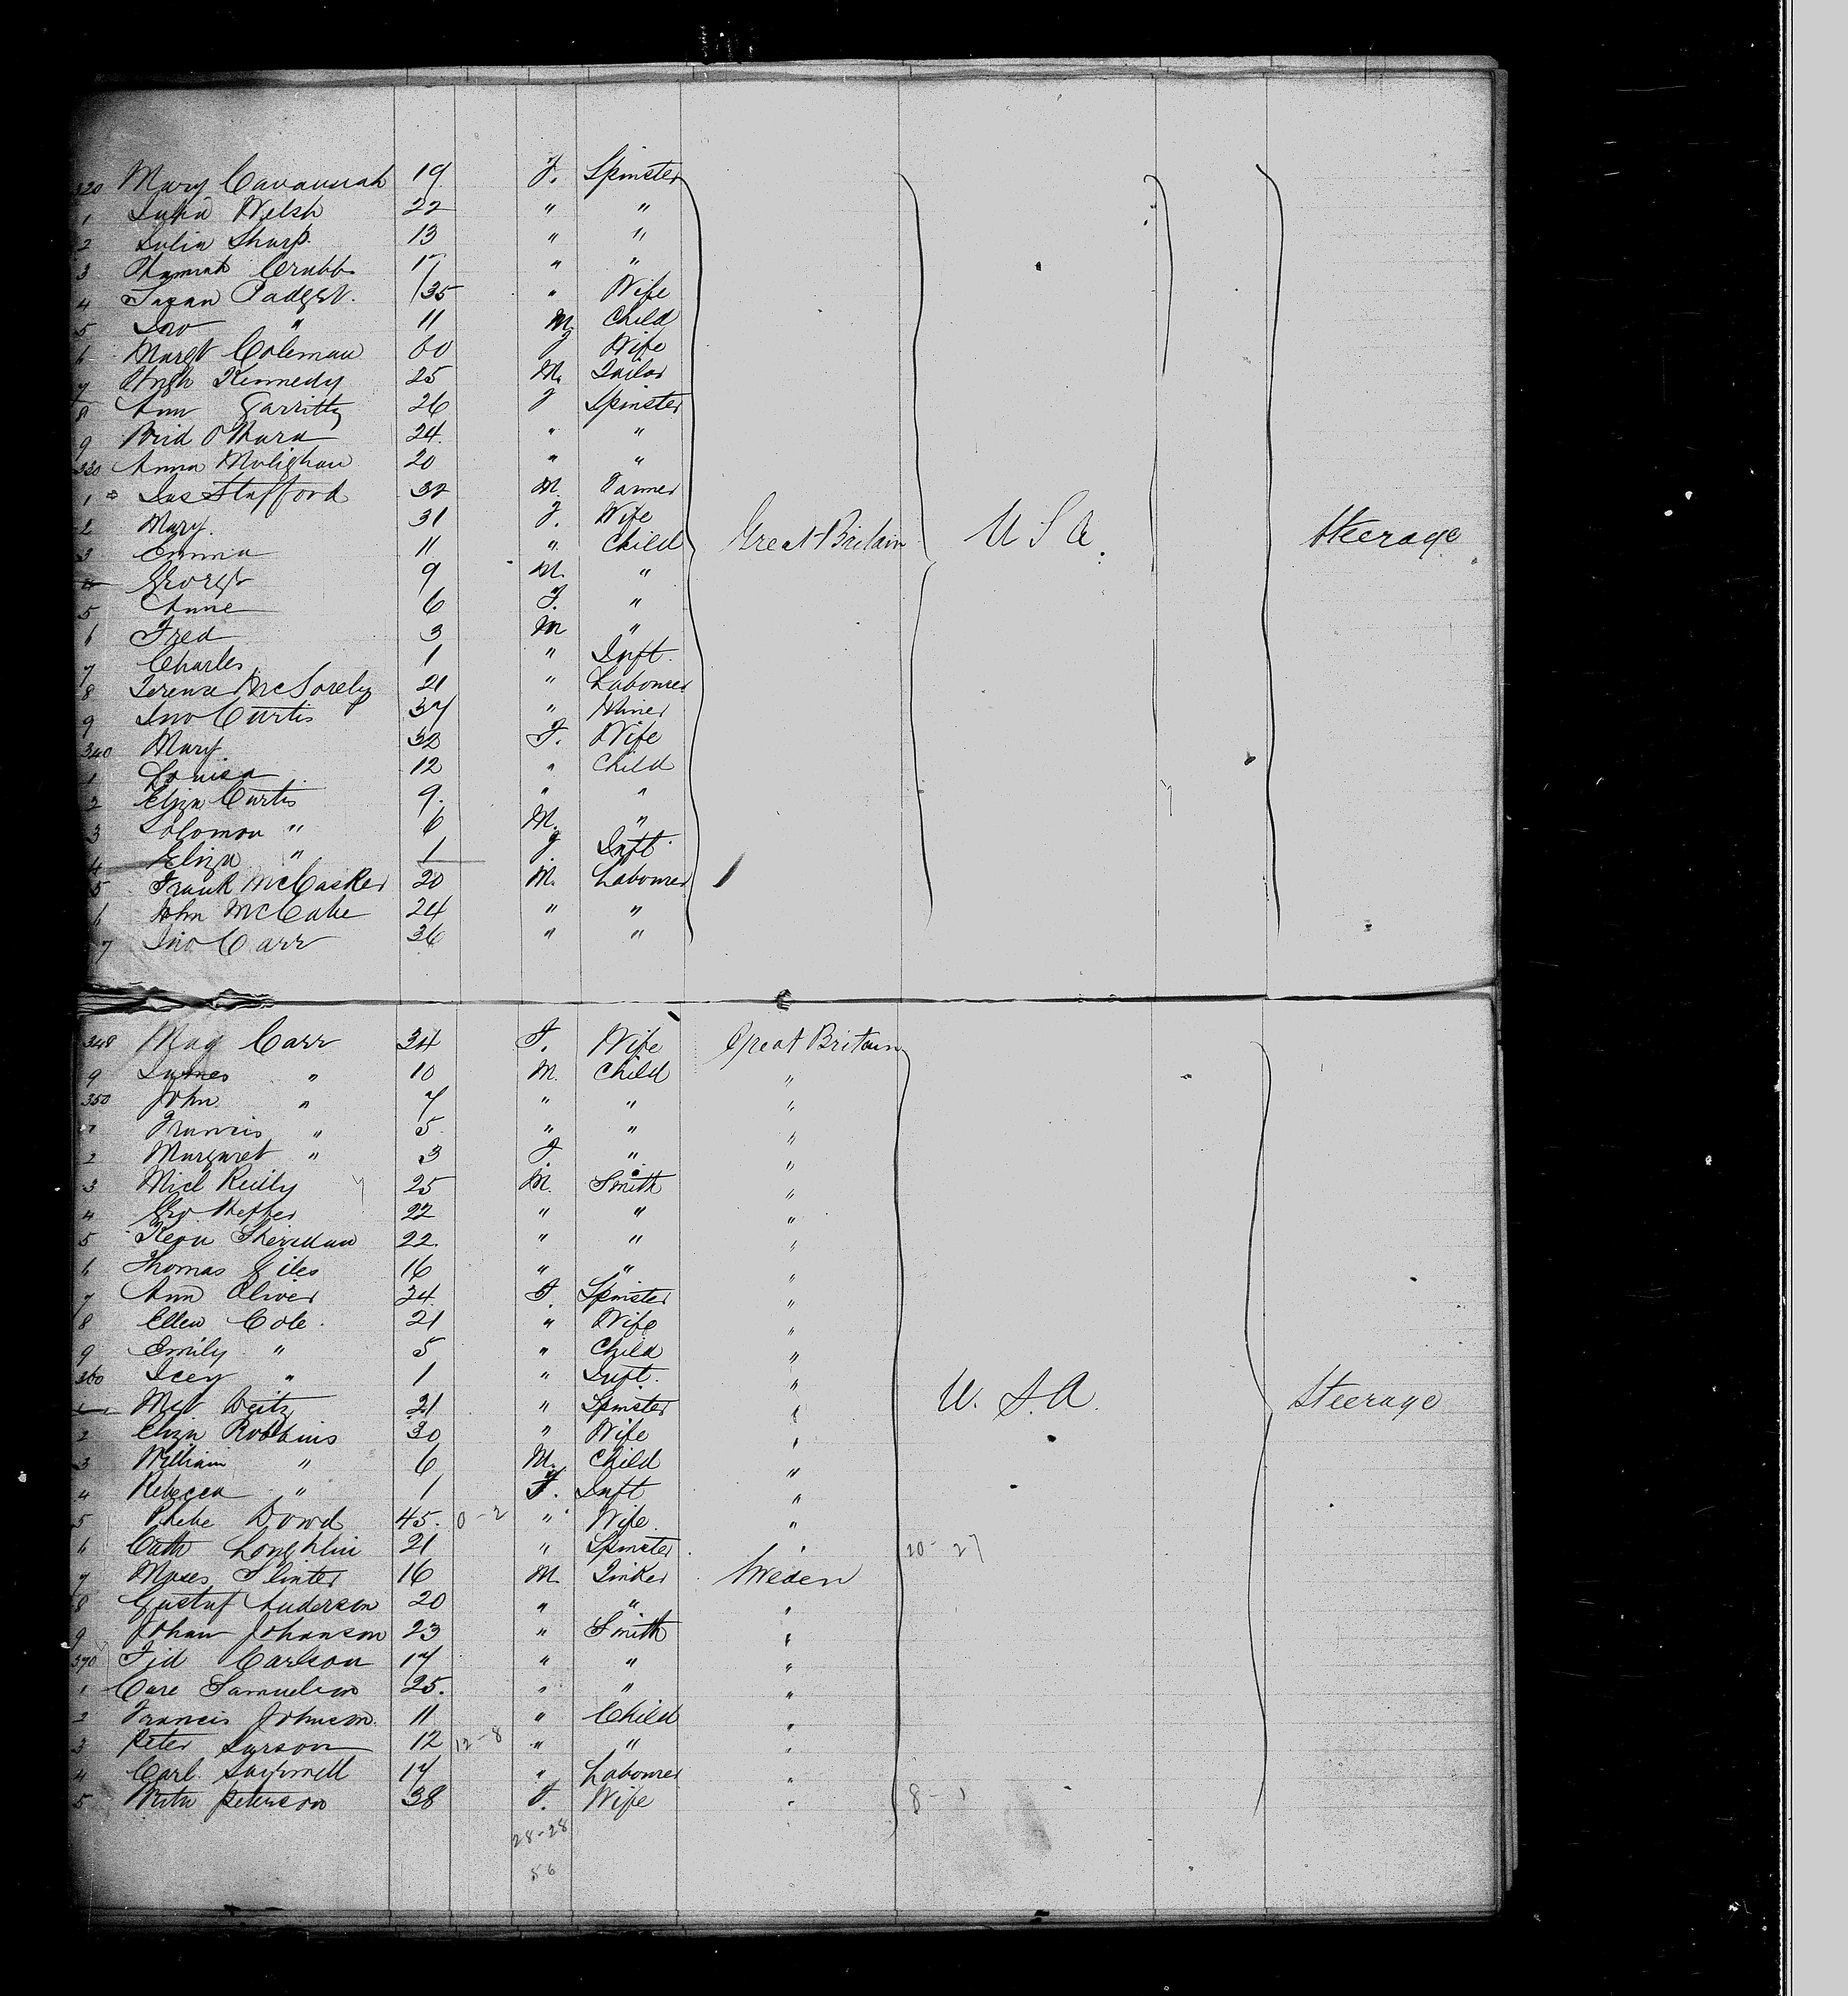 320 Mary Cavannah 19 F. Spinster
1 Julia Welsh 22 " "
2 Julia Sharp. 13 " "
3 Hannah Crubb 17 " "
4 Susan Padget. 35 " Wife
5 Jno " 11 M. Child
6 Margt Coleman 60 F Wife
7 Hugh Kennedy 25 M. Tailor
8 Ann Garritty 26 F Spinster
9 Brid O'Hara 24. " "
330 Anna Molighan 20 " "
1 Jas Stafford 32 M. Farmer
2 Mary. 31 F. Wife
3 Emma 11 " Child Great Britain U S A. Steerage
4 George 9 M. "
5 Anne 6 F. "
6 Fred 3 M "
7 Charles 1 " Inft.
8 Terence McSorely 21 " Labourer
9 Jno Curtis 37 " Miner
340 Mary 32 F. Wife
1 Louisa 12 " Child
2 Eliza Curtis 9. " "
3 Solomon " 6 M. "
4 Eliza " 1 F Inft.
5 Frank McCasker 20 M. Labourer
6 John McCabe 24 " "
7 Jno Carr 36 " "
348 Mag Carr 34 F. Wife Great Britain
9 James " 10 M. Child "
350 John " 7 " " "
1 Francis " 5 " " "
2 Margaret " 3 F " "
3 Micl Reilly 25 M. Smith "
4 Geo 22 " " "
5 Sheridan 22. " " "
6 Thomas Giles 16 " " "
7 Ann Oliver 24. F. Spinster "
8 Ellen Cole. 21 " Wife "
9 Emily " 5 " Child "
360 " 1 " Inft. "
Mgt 21 " Spinster " U. S. A. Steerage
2 Eliza Robbins 30 " Wife "
3 William " 6 M. Child "
4 Rebecca " 1 F. Inft "
5 Phebe Dowd 45. 0-2 " Wife "
6 Cath Loughlin 21 " Spinster " 20-27
7 Moses Slinter 16 M. Tinker Sweden
8 Gustaf Anderson 20 " " "
9 Johan Johanson 23 " Smith "
370 Carlson 17 " " "
1 Samuelson 25. " " "
2 Francis Johnson. 11 " Child "
3 Peter Larson 12 12-8 " " "
4 Carl 17 " Labourer "
5 Peterson 38 F. Wife " 8-1
28-28
56